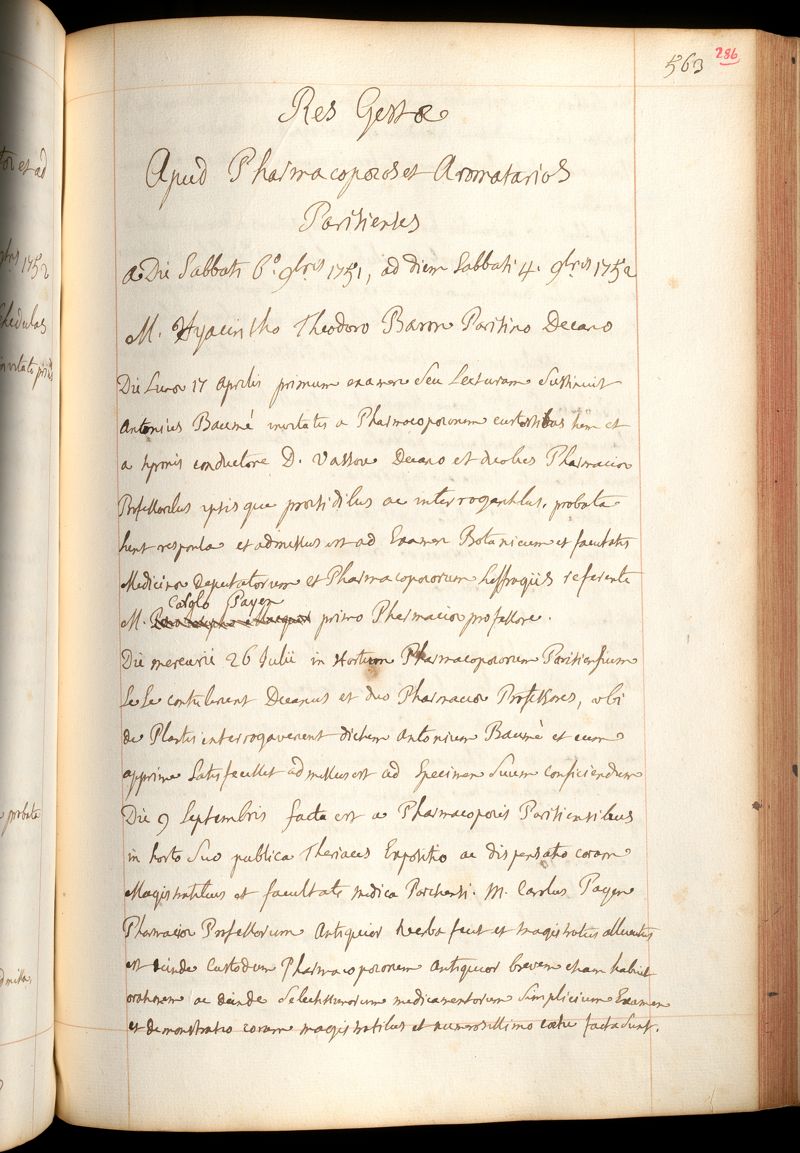 563 286
Res Gestæ
Apud Pharmacopoeos et Aromatarios
Parisienses
a Die Sabbati 6.° 9bris 1751, ad diem Sabbati 4. 9bris 1752
M. Hyacintho Theodoro Baron Parisino Decano
Die Lunæ 17 aprilis primum examen seu Lecturam sustinuit
Antonius Baumé invitatis a Pharmacopoeorum custodibus hîm et
a tyronis conductore D. Vassou Decano et duobus Pharmaciæ
Professoribus ipsisque præsidibus ac interrogantibus. probata
sunt responsa et admissus est ad Examen Botanicum et facultatis
Medicinæ Deputatorum et Pharmacopoeorum suffragiis referente
Carolo Payen
M. primo Pharmaciæ professore.
Die mercurii 26 Julii in Hortum Pharmacopoeorum Parisiensium
se se contulerunt Decanus et duo Pharmaciæ Professores, ubi
de Plantis interrogaverunt dictum antonium Baumé et cum
apprime satisfecisset admissus est ad specimen suum conficiendum
Die 9 Septembris facta est a Pharmacopoeis Parisiensibus
in horto suo publica Theriaces Expositio ac dispensatio coram
Magistratibus et facultate medica M. Carolus Payen
Pharmaciæ Professorum Antiquior verba fecit et magistratus allocutus
est deinde Custodum Pharmacopoeorum antiquior brevem etiam habuit
orationem ac deinde selectissimorum medicamentorum simplicium Examen
et demonstratio coram magistratibus et numerosissimo cœtu facta sunt.
tor et ad
1752
schedulas
probate